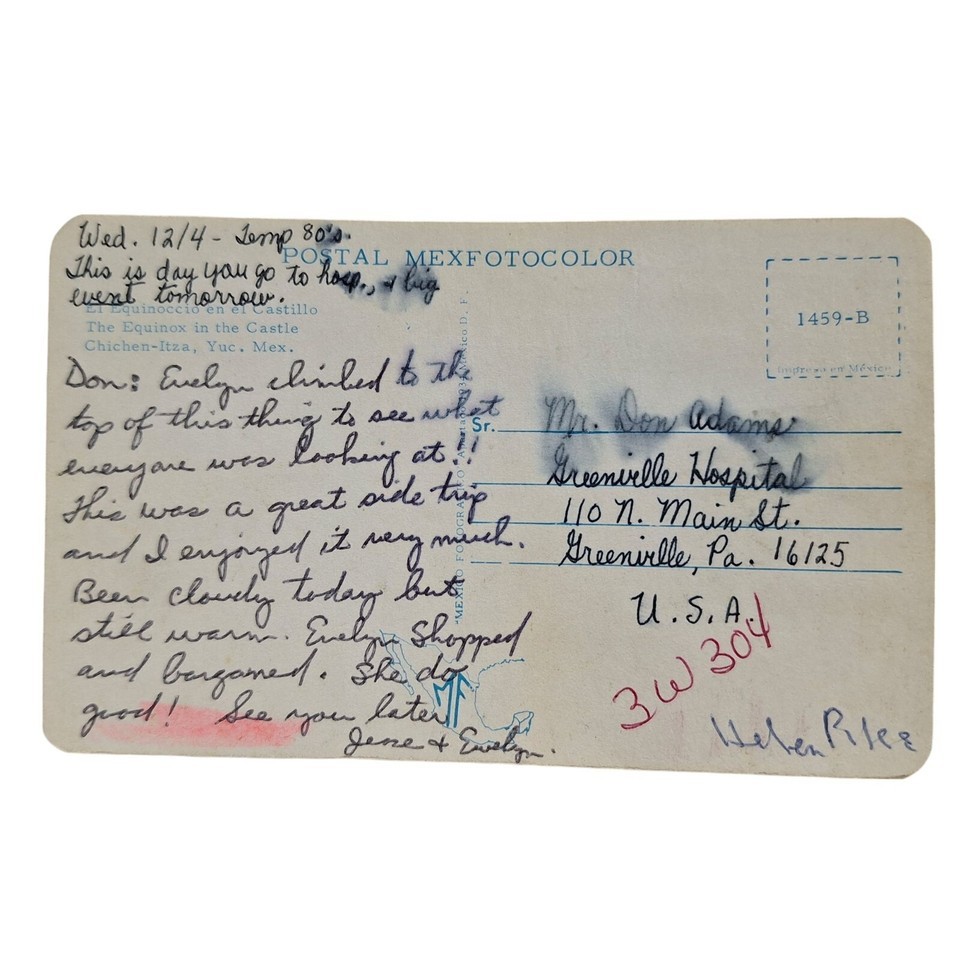 Wed. 12/4 - Temp 80's.
This is day you go to hosp., & big
event tomorrow.
POSTAL MEXFOTOCOLOR
El Equinoccio en el Castillo
The Equinox in the Castle
Chichen-Itza, Yuc. Mex.
Don: Evelyn climbed to the
top of this thing to see what
everyone was looking at!!
This was a great side trip
and I enjoyed it very much.
Been cloudy today but
still warm. Evelyn shopped
and bargamed. She do
good! See you later
Jesse & Evelyn.
"MEXICO FOTOGRAFICO"
México D. F.
MF
1459-B
Impreso en México
Sr. Mr. Don Adams
Greenville Hospital
110 N. Main St.
Greenville, Pa. 16125
U.S.A.
3W304
Helen